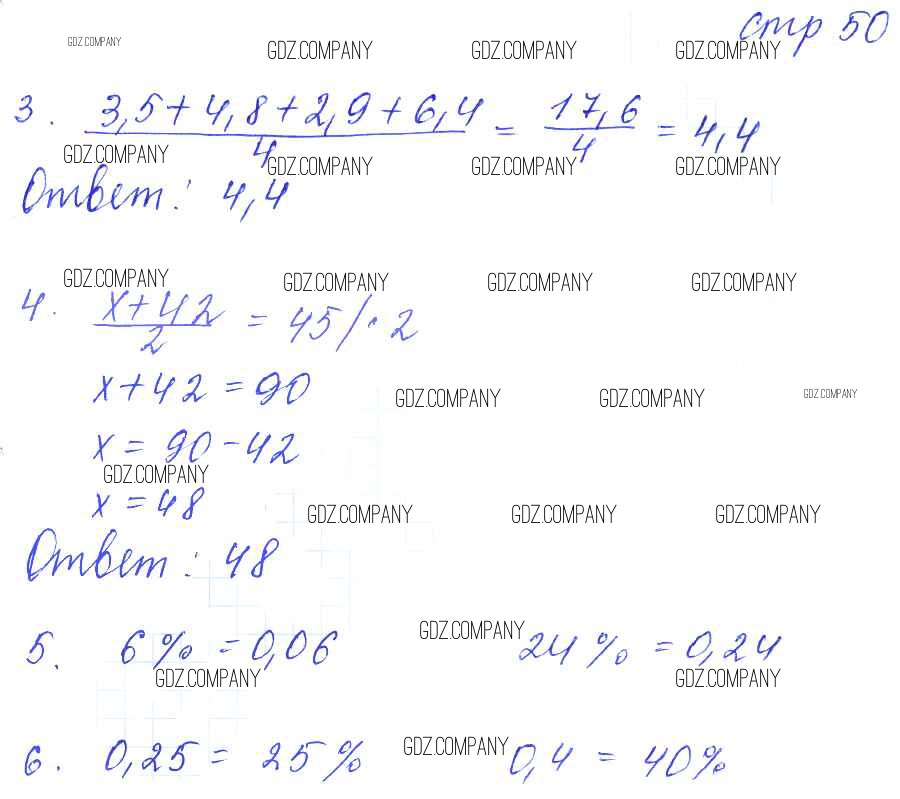 стр 50
GDZ.COMPANY GDZ.COMPANY GDZ.COMPANY GDZ.COMPANY
3. (3,5+4,8+2,9+6,4)/4 = 17,6/4 = 4,4
GDZ.COMPANY GDZ.COMPANY GDZ.COMPANY GDZ.COMPANY
Ответ: 4,4
GDZ.COMPANY GDZ.COMPANY GDZ.COMPANY GDZ.COMPANY
4. (x+42)/2 = 45 /·2
x+42=90
GDZ.COMPANY GDZ.COMPANY GDZ.COMPANY
x = 90-42
GDZ.COMPANY
x = 48
GDZ.COMPANY GDZ.COMPANY GDZ.COMPANY
Ответ: 48
GDZ.COMPANY
5. 6% = 0,06 24% = 0,24
GDZ.COMPANY GDZ.COMPANY
GDZ.COMPANY
6. 0,25 = 25% 0,4 = 40%